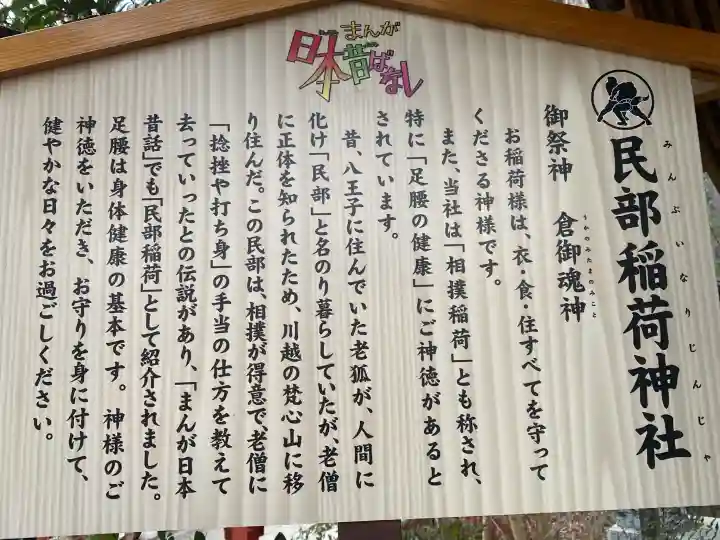 まんが
日本昔ばなし
民部稲荷神社
みんぶいなりじんじゃ
御祭神　倉御魂神
うかのみたまのみこと
お稲荷様は、衣・食・住すべてを守って
くださる神様です。
また、当社は「相撲稲荷」とも称され、
特に「足腰の健康」にご神徳があると
されています。
昔、八王子に住んでいた老狐が、人間に
化け「民部」と名のり暮らしていたが、老僧
に正体を知られたため、川越の梵心山に移
り住んだ。この民部は、相撲が得意で、老僧に
「捻挫や打ち身」の手当の仕方を教えて
去っていったとの伝説があり、「まんが日本
昔話」でも「民部稲荷」として紹介されました。
足腰は身体健康の基本です。神様のご
神徳をいただき、お守りを身に付けて、
健やかな日々をお過ごしください。